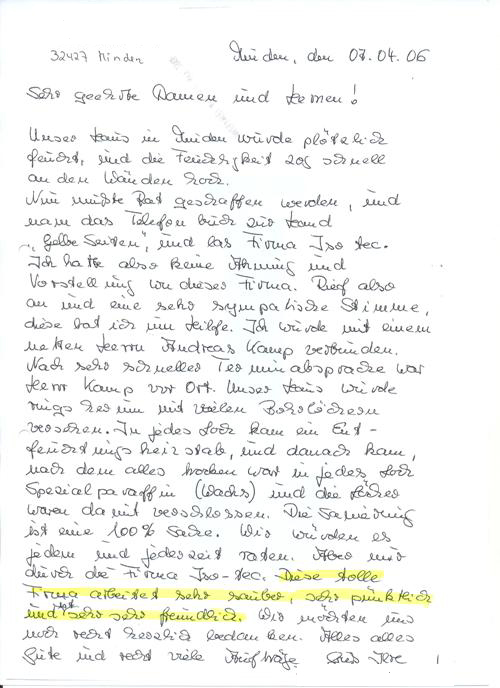 32427 Minden
Minden, den 07.04.06
Sehr geehrte Damen und Herren!
Unser Haus in Minden wurde plötzlich
feucht, und die Feuchigkeit zog schnell
an den Wänden hoch.
Nun mußte Rat geschaffen werden, und
nam das Telefon buch zur Hand
„Gelbe Seiten", und las Firma Iso tec.
Ich hatte also keine Ahnung und
Vorstellung von dieser Firma. Rief also
an und eine sehr sympatische Stimme,
diese bat ich um Hilfe. Ich wurde mit einem
netten Herrn Andreas Kamp verbunden.
Nach sehr schneller Terminabsprache war
Herr Kamp vor Ort. Unser Haus wurde
rings herum mit vielen Bohrlöchern
versehen. In jedes Loch kam ein Ent-
feuchtungsheizstab, und danach kam,
nach dem alles trocken war in jedes Loch
Spezialparaffin (Wachs) und die Löcher
waren damit verschlossen. Die Sanierung
ist eine 100% Sache. Wir würden es
jedem und jederzeit raten. Aber nur
durch die Firma Iso-tec. Diese tolle
Firma arbeitet sehr sauber, sehr pünktlich
und ist sehr sehr freundlich. Wir möchten uns
noch recht herzlich bedanken. Alles alles
Gute und recht viele Aufträge Ihre